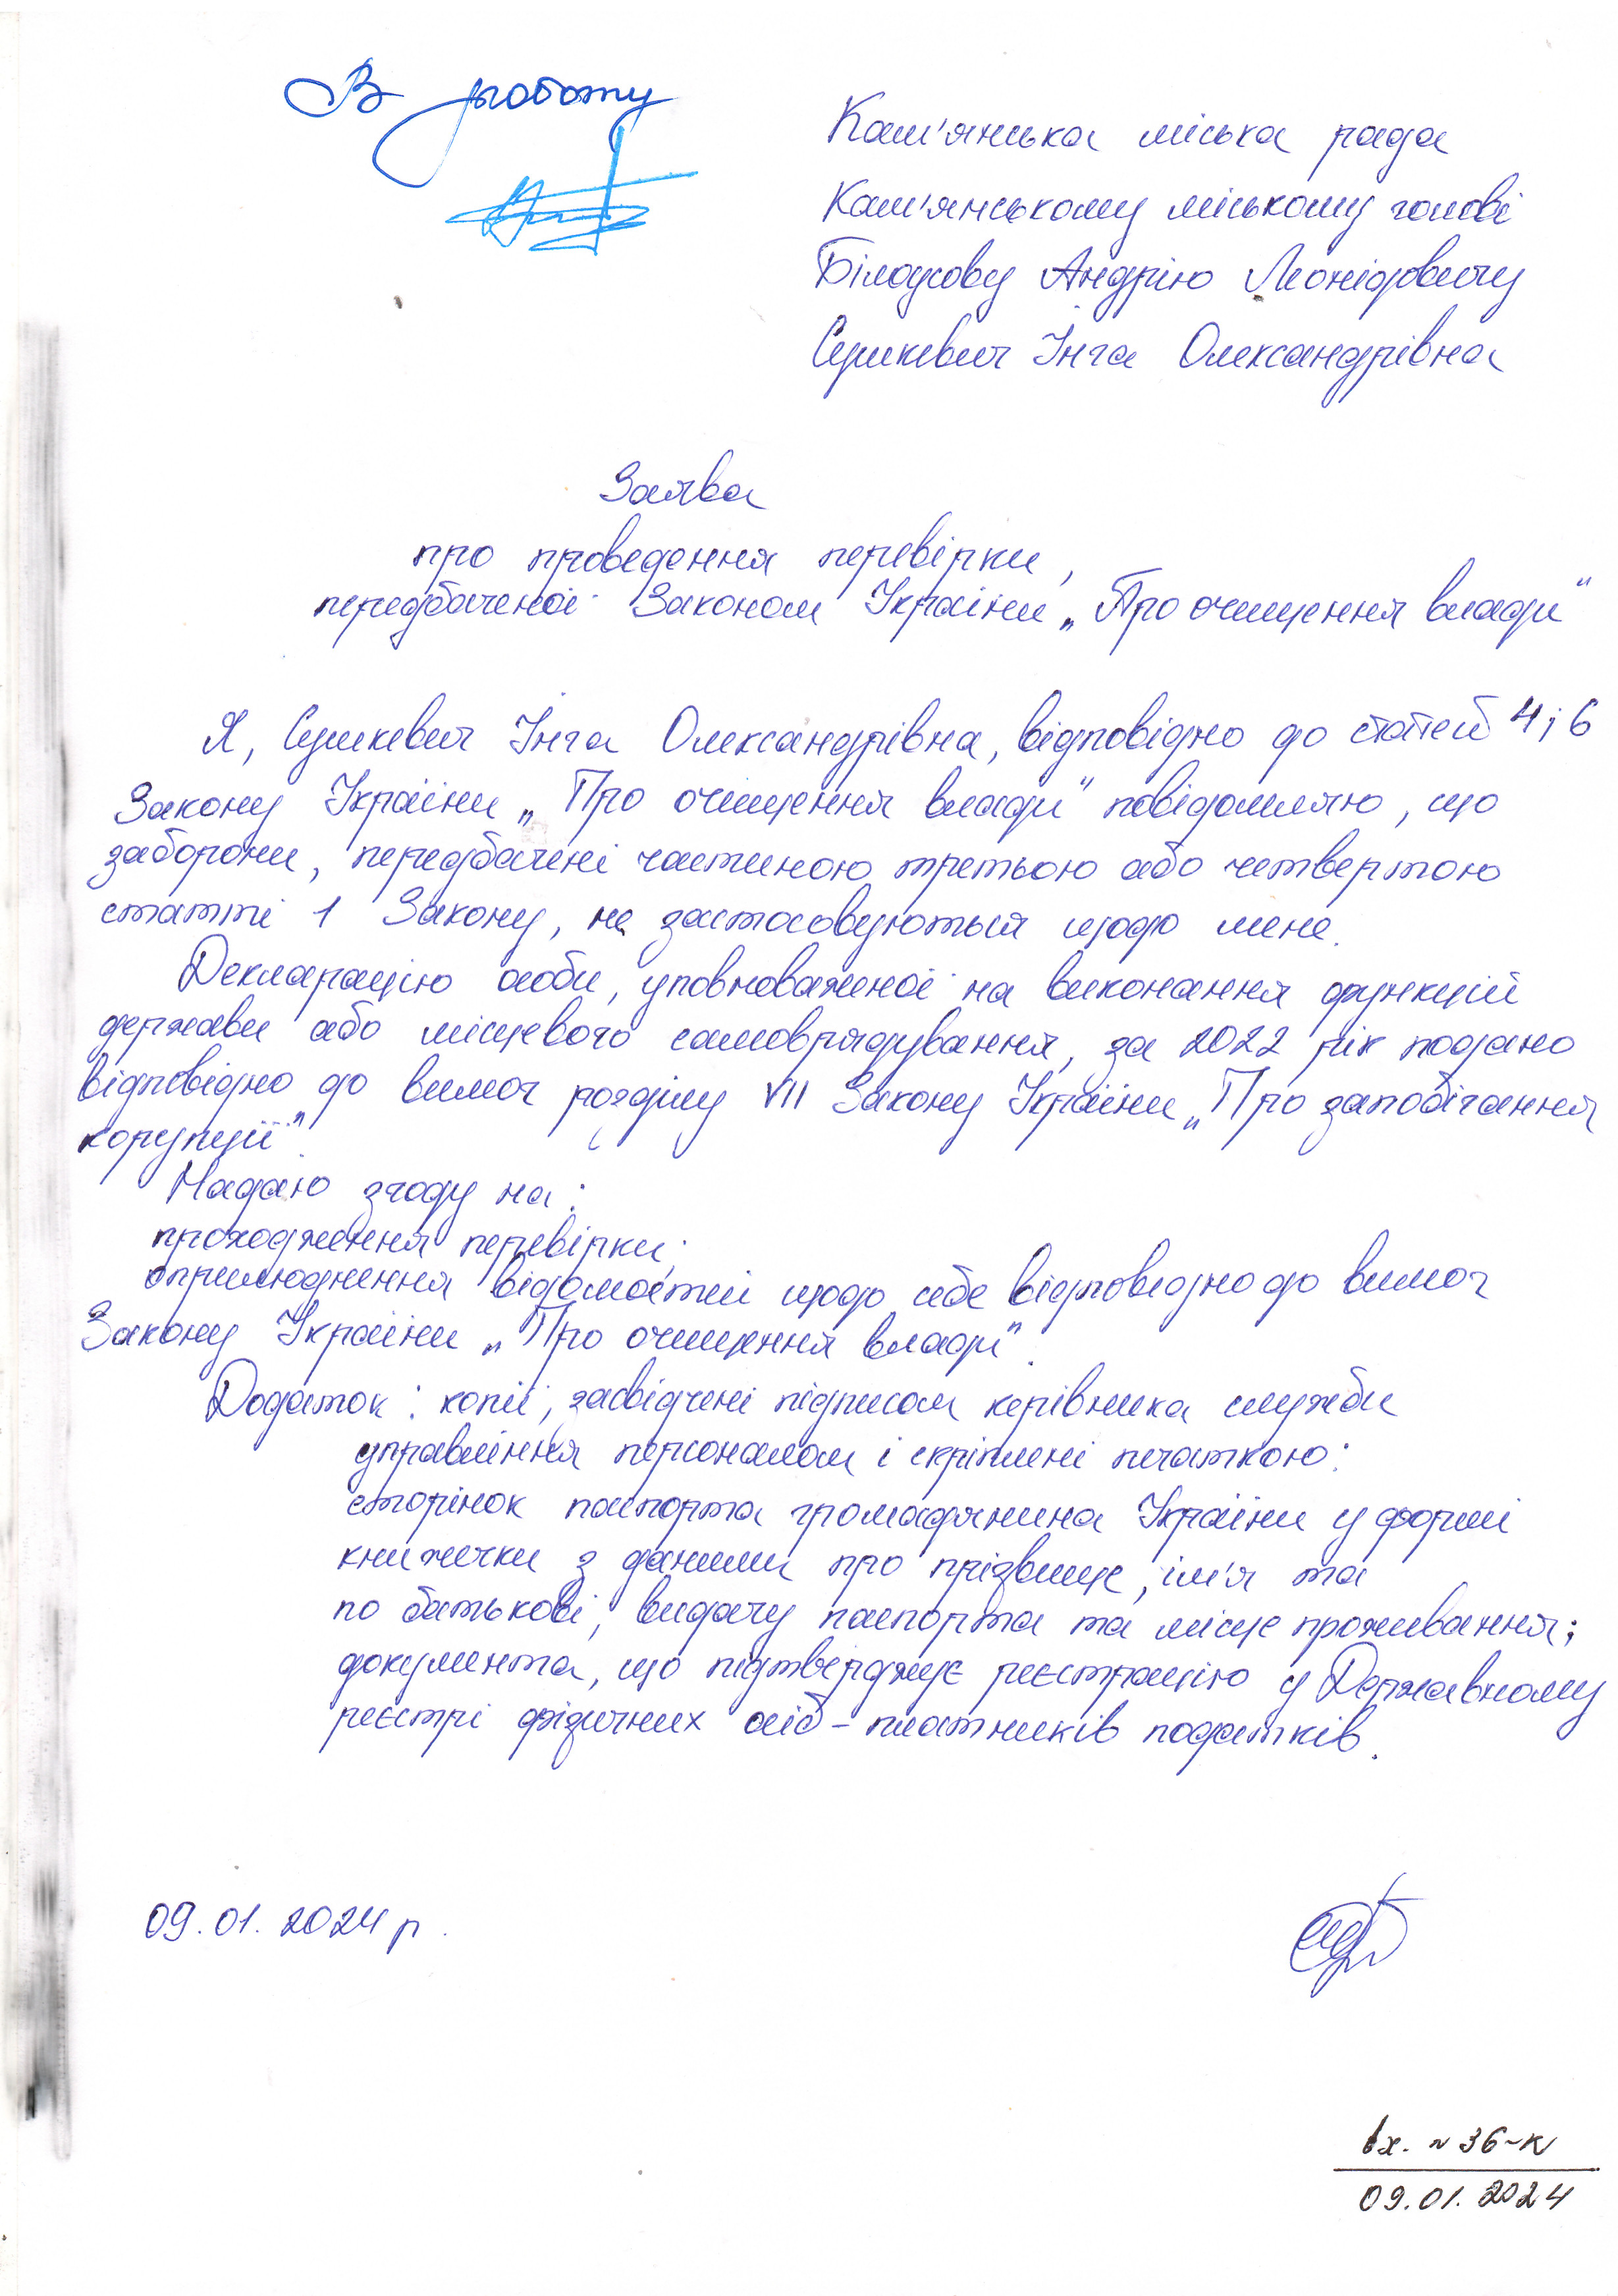 В роботу
Кам'янська міська рада
Кам'янському міському голові
Білоусову Андрію Леонідовичу
Сушкевич Інга Олександрівна
Заява
про проведення перевірки,
передбаченої Законом України „Про очищення влади"
Я, Сушкевич Інга Олександрівна, відповідно до статей 4 і 6
Закону України „Про очищення влади" повідомляю, що
заборони, передбачені частиною третьою або четвертою
статті 1 Закону, не застосовуються щодо мене.
Декларацію особи, уповноваженої на виконання функцій
держави або місцевого самоврядування, за 2022 рік подано
відповідно до вимог розділу VII Закону України „Про запобігання
корупції".
Надаю згоду на:
проходження перевірки;
оприлюднення відомостей щодо себе відповідно до вимог
Закону України „Про очищення влади".
Додаток: копії, засвідчені підписом керівника служби
управління персоналом і скріплені печаткою:
сторінок паспорта громадянина України у формі
книжечки з даними про прізвище, ім'я та
по батькові, видачу паспорта та місце проживання;
документа, що підтверджує реєстрацію у Державному
реєстрі фізичних осіб - платників податків.
09.01.2024 р.
вх. № 36-к
09.01.2024